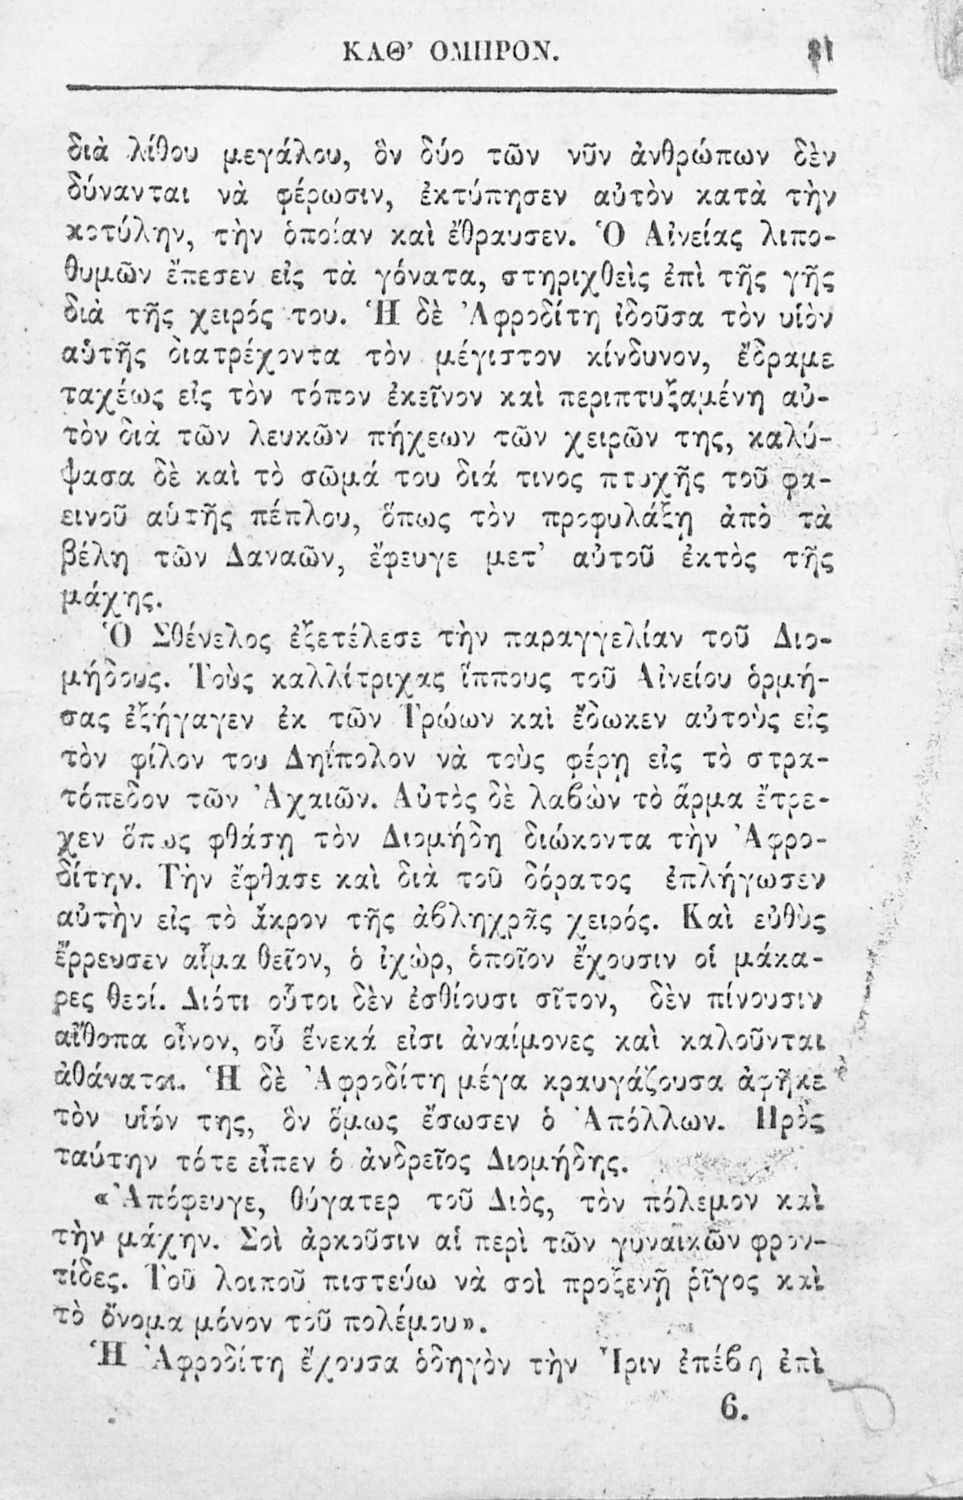 ΚΑΘ’ ΟΜΗΡΟΝ. 81
διὰ λίθου μεγάλου, ὃν δύο τῶν νῦν ἀνθρώπων δὲν
δύνανται νὰ φέρωσιν, ἐκτύπησεν αὐτὸν κατὰ τὴν
κοτύλην, τὴν ὁποίαν καὶ ἔθραυσεν. Ὁ Αἰνείας λιπο-
θυμῶν ἔπεσεν εἰς τὰ γόνατα, στηριχθεὶς ἐπὶ τῆς γῆς
διὰ τῆς χειρός του. Ἡ δὲ Ἀφροδίτη ἰδοῦσα τὸν υἱὸν
αὑτῆς διατρέχοντα τὸν μέγιστον κίνδυνον, ἔδραμε
ταχέως εἰς τὸν τόπον ἐκεῖνον καὶ περιπτυξαμένη αὐ-
τὸν διὰ τῶν λευκῶν πήχεων τῶν χειρῶν της, καλύ-
ψασα δὲ καὶ τὸ σῶμά του διά τινος πτυχῆς τοῦ φα-
εινοῦ αὑτῆς πέπλου, ὅπως τὸν προφυλάξῃ ἀπὸ τὰ
βέλη τῶν Δαναῶν, ἔφευγε μετ’ αὐτοῦ ἐκτὸς τῆς
μάχης.
Ὁ Σθένελος ἐξετέλεσε τὴν παραγγελίαν τοῦ Διο-
μήδους. Τοὺς καλλίτριχας ἵππους τοῦ Αἰνείου ὁρμή-
σας ἐξήγαγεν ἐκ τῶν Τρώων καὶ ἔδωκεν αὐτοὺς εἰς
τὸν φίλον του Δηΐπολον νὰ τοὺς φέρῃ εἰς τὸ στρα-
τόπεδον τῶν Ἀχαιῶν. Αὐτὸς δὲ λαβὼν τὸ ἅρμα ἔτρε-
χεν ὅπως φθάσῃ τὸν Διομήδη διώκοντα τὴν Ἀφρο-
δίτην. Τὴν ἔφθασε καὶ διὰ τοῦ δόρατος ἐπλήγωσεν
αὐτὴν εἰς τὸ ἄκρον τῆς ἀβληχρᾶς χειρός. Καὶ εὐθὺς
ἔρρευσεν αἷμα θεῖον, ὁ ἰχὼρ, ὁποῖον ἔχουσιν οἱ μάκα-
ρες θεοί. Διότι οὗτοι δὲν ἐσθίουσι σῖτον, δὲν πίνουσιν
αἴθοπα οἶνον, οὗ ἕνεκά εἰσι ἀναίμονες καὶ καλοῦνται
ἀθάνατοι. Ἡ δὲ Ἀφροδίτη μέγα κραυγάζουσα ἀφῆκε
τὸν υἱόν της, ὃν ὅμως ἔσωσεν ὁ Ἀπόλλων. Πρὸς
ταύτην τότε εἶπεν ὁ ἀνδρεῖος Διομήδης.
«Ἀπόφευγε, θύγατερ τοῦ Διὸς, τὸν πόλεμον καὶ
τὴν μάχην. Σοὶ ἀρκοῦσιν αἱ περὶ τῶν γυναικῶν φρον-
τίδες. Τοῦ λοιποῦ πιστεύω νὰ σοὶ προξενῇ ῥῖγος καὶ
τὸ ὄνομα μόνον τοῦ πολέμου».
Ἡ Ἀφροδίτη ἔχουσα ὁδηγὸν τὴν Ἶριν ἐπέβη ἐπὶ
6.